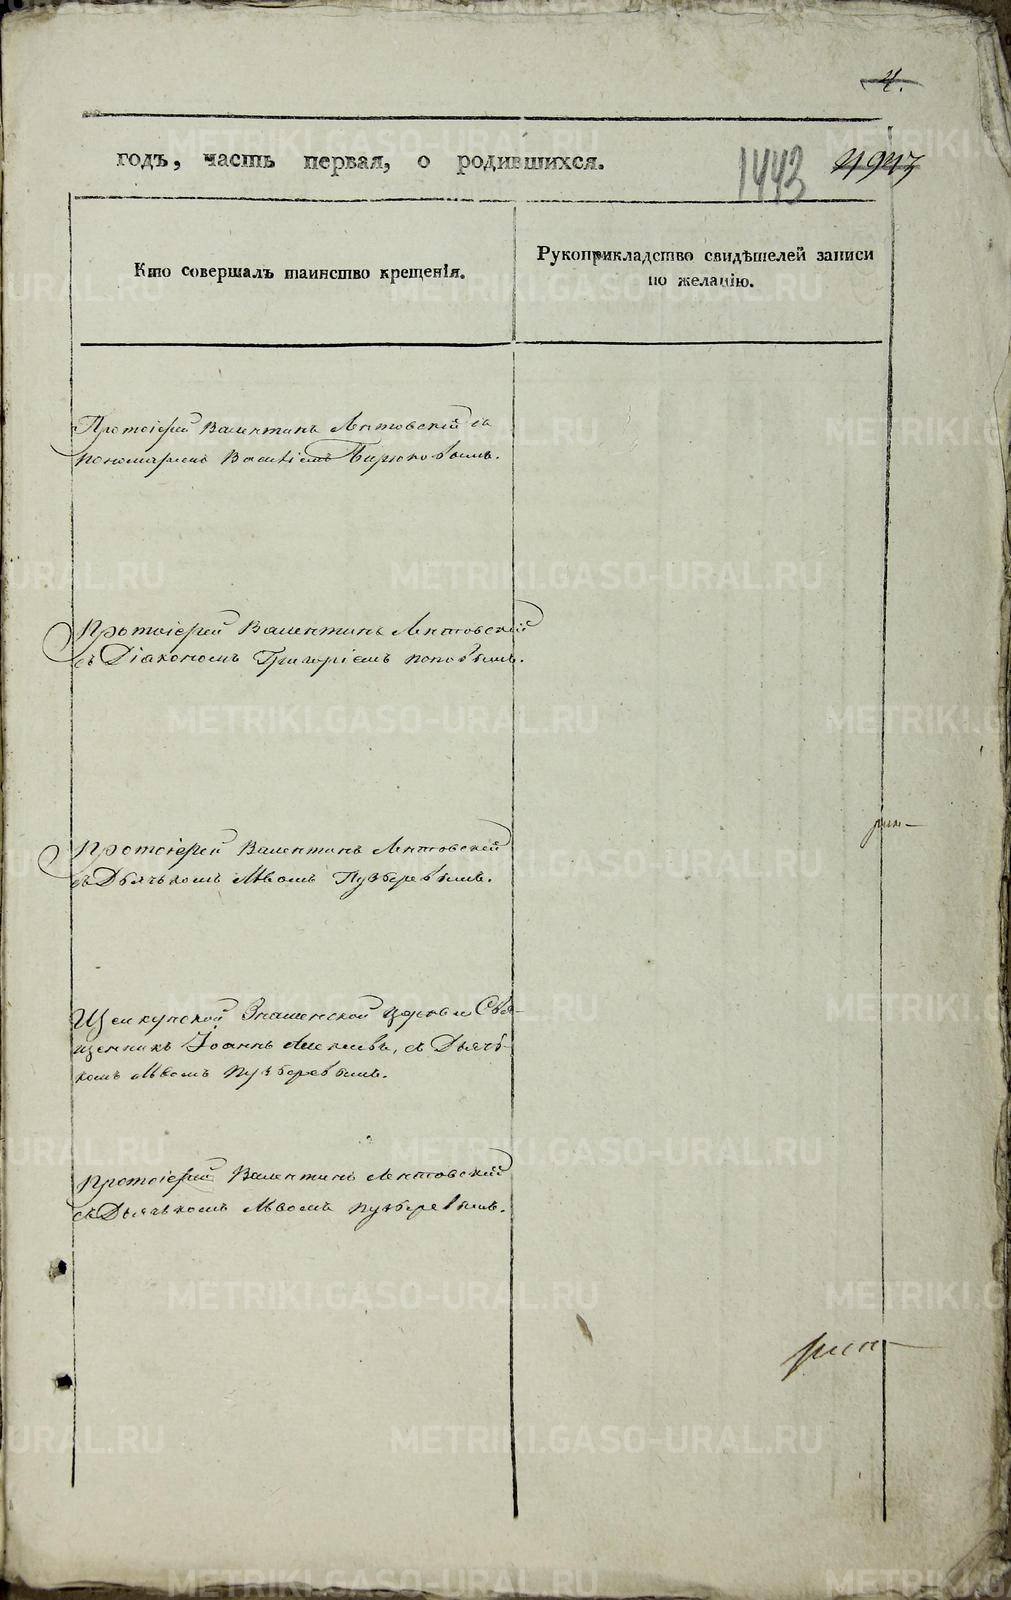 4.
годъ, часть первая, о родившихся.
1443 4943
Кто совершалъ таинство крещенія.
Рукоприкладство свидѣтелей записи
по желанію.
Протоіерей Валентинъ Лептовскій съ
пономаремъ Василіемъ Бирюковымъ.
Протоіерей Валентинъ Лептовскій
съ Діакономъ Григоріемъ поповымъ.
Протоіерей Валентинъ Лептовскій
съ Дьячькомъ Львомъ Пузыревымъ.
Щелкунской Знаменской церкви Свя-
щенникъ Іоаннъ съ Дьячь-
комъ Львомъ пузыревымъ.
протоіерей Валентинъ Лептовскій
съ Дьячькомъ Львомъ пузыревымъ.
METRIKI.GASO-URAL.RU